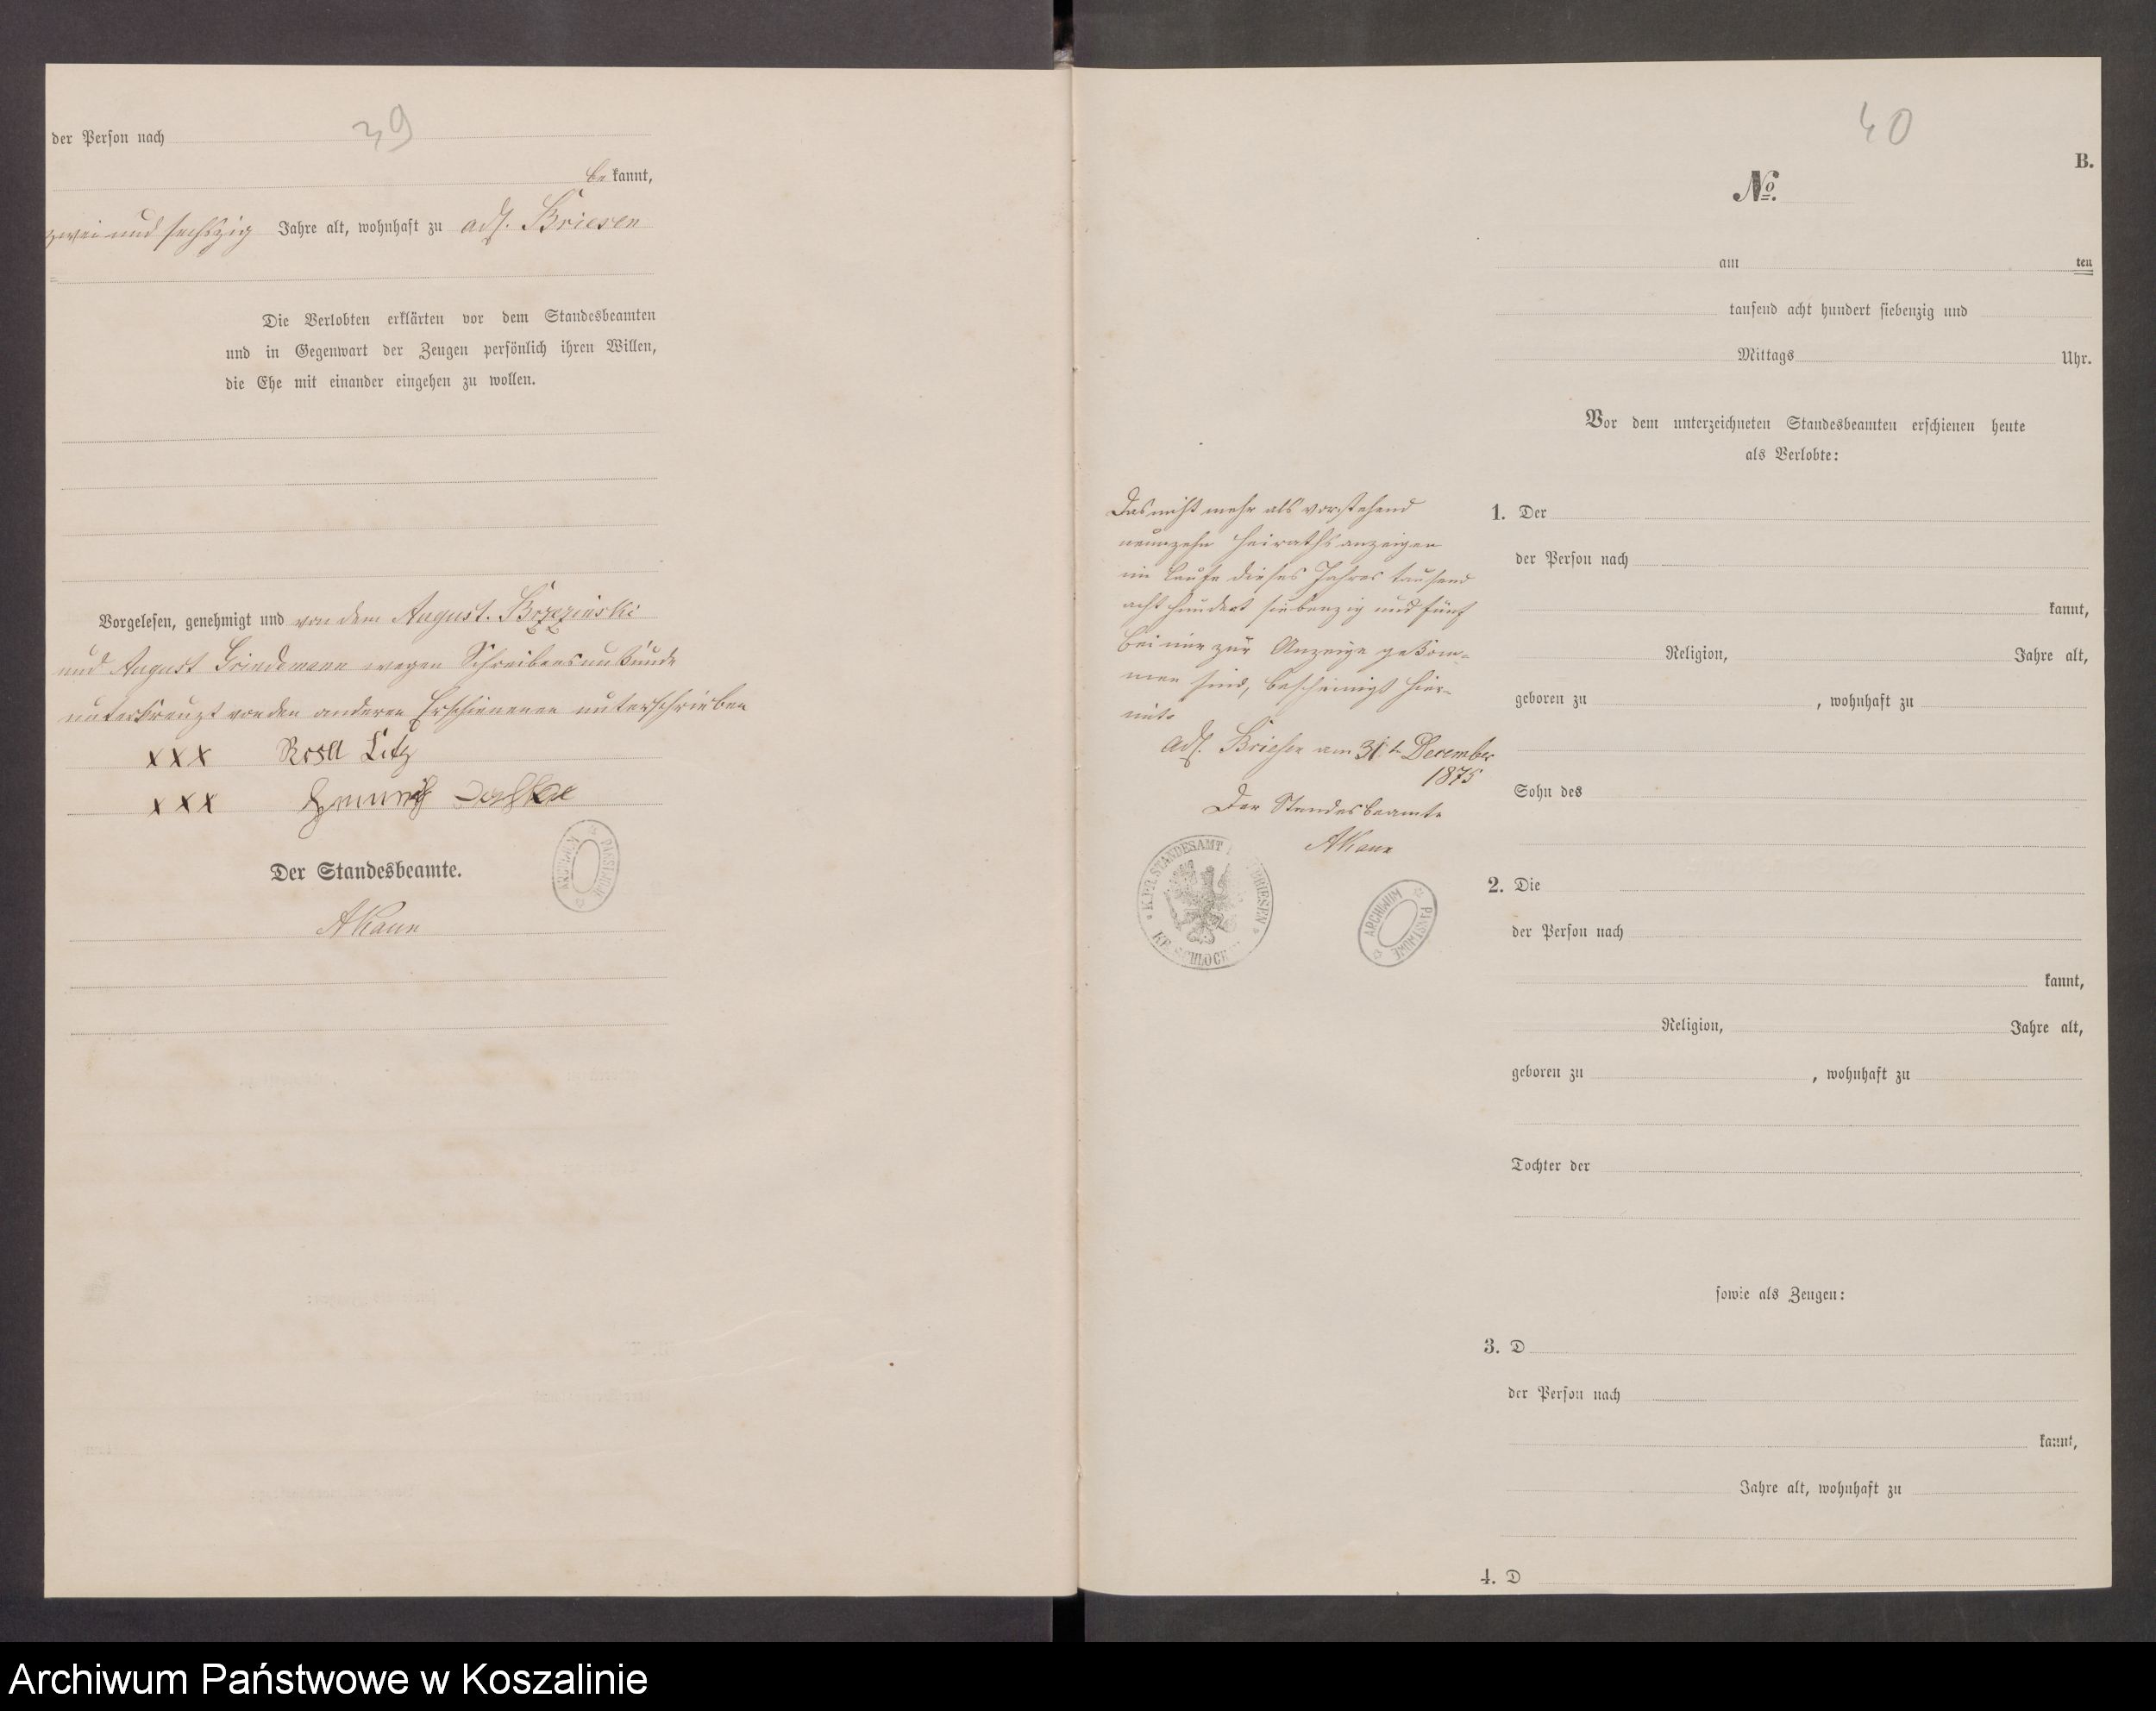 39
der Person nach
be kannt,
zwei und sechszig Jahre alt, wohnhaft zu adl. Briesen
Die Verlobten erklärten vor dem Standesbeamten
und in Gegenwart der Zeugen persönlich ihren Willen,
die Ehe mit einander eingehen zu wollen.
Vorgelesen, genehmigt und von dem August. Brzezinski
und August wegen Schreibensunkunde
unterkreuzt von den anderen Erschienenen unterschrieben
xxx Rosa Litz
xxx
Der Standesbeamte.
AKann
ARCHIWUM PAŃSTWOWE
40
B.
No.
am ten
tausend acht hundert siebenzig und
Mittags Uhr.
Vor dem unterzeichneten Standesbeamten erschienen heute
als Verlobte:
Das nicht mehr als vorstehend
neunzehn Heirathsanzeigen
im Laufe dieses Jahres tausend
acht hundert siebenzig und fünf
bei mir zur Anzeige gekom-
men sind, bescheinigt hier-
mit.
Adl. Briesen am 31t December
1875
Der Standesbeamte
AKann
KPR. STANDESAMT BRIESEN
KR. SCHLOCH
ARCHIWUM PAŃSTWOWE
1. Der
der Person nach
kannt,
Religion, Jahre alt,
geboren zu , wohnhaft zu
Sohn des
2. Die
der Person nach
kannt,
Religion, Jahre alt,
geboren zu , wohnhaft zu
Tochter der
sowie als Zeugen:
3. D
der Person nach
kannt,
Jahre alt, wohnhaft zu
4. D
Archiwum Państwowe w Koszalinie